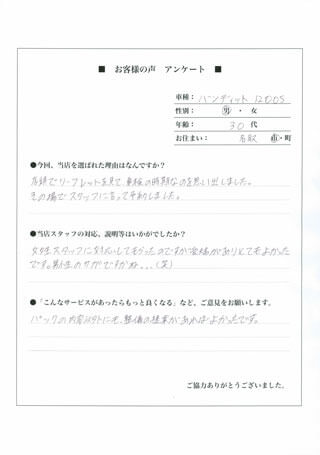 ■ お客様の声 アンケート ■
車種： バンディット 1200S
性別： 男 ・ 女
年齢： 30 代
お住まい： 名取 市・町
●今回、当店を選ばれた理由はなんですか？
店頭でリーフレットを見て、車検の時期なのを思い出しました。
その場でスタッフに言って予約しました。
●当店スタッフの対応、説明等はいかがでしたか？
女性スタッフに対応してもらったのですが愛嬌がありとてもよかった
です。男性のサガですかね...(笑)
●「こんなサービスがあったらもっと良くなる」など、ご意見をお願いします。
パックの内容以外にも、整備の提案があればよかったです。
ご協力ありがとうございました。